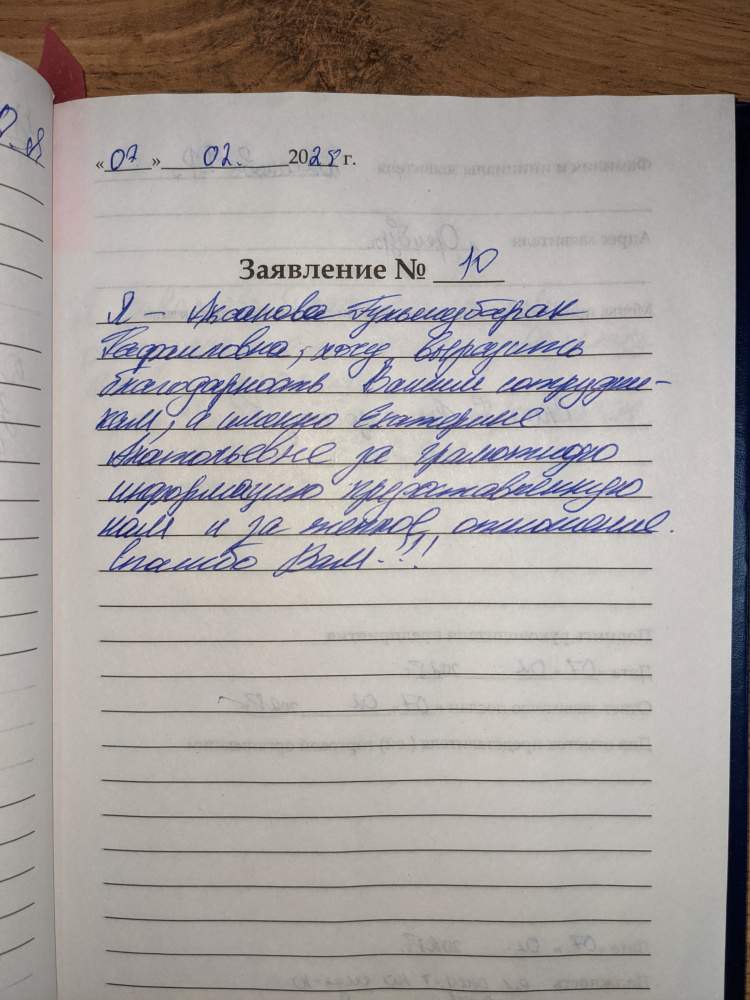 « 07 » 02. 2025 г.
Заявление № 10
Я - Аксанова
Рафаиловна, хочу выразить
благодарность Вашим сотрудни-
кам, а именно Екатерине
Анатольевне за грамотную
информацию предоставленную
нам и за теплое отношение.
Спасибо Вам!!!